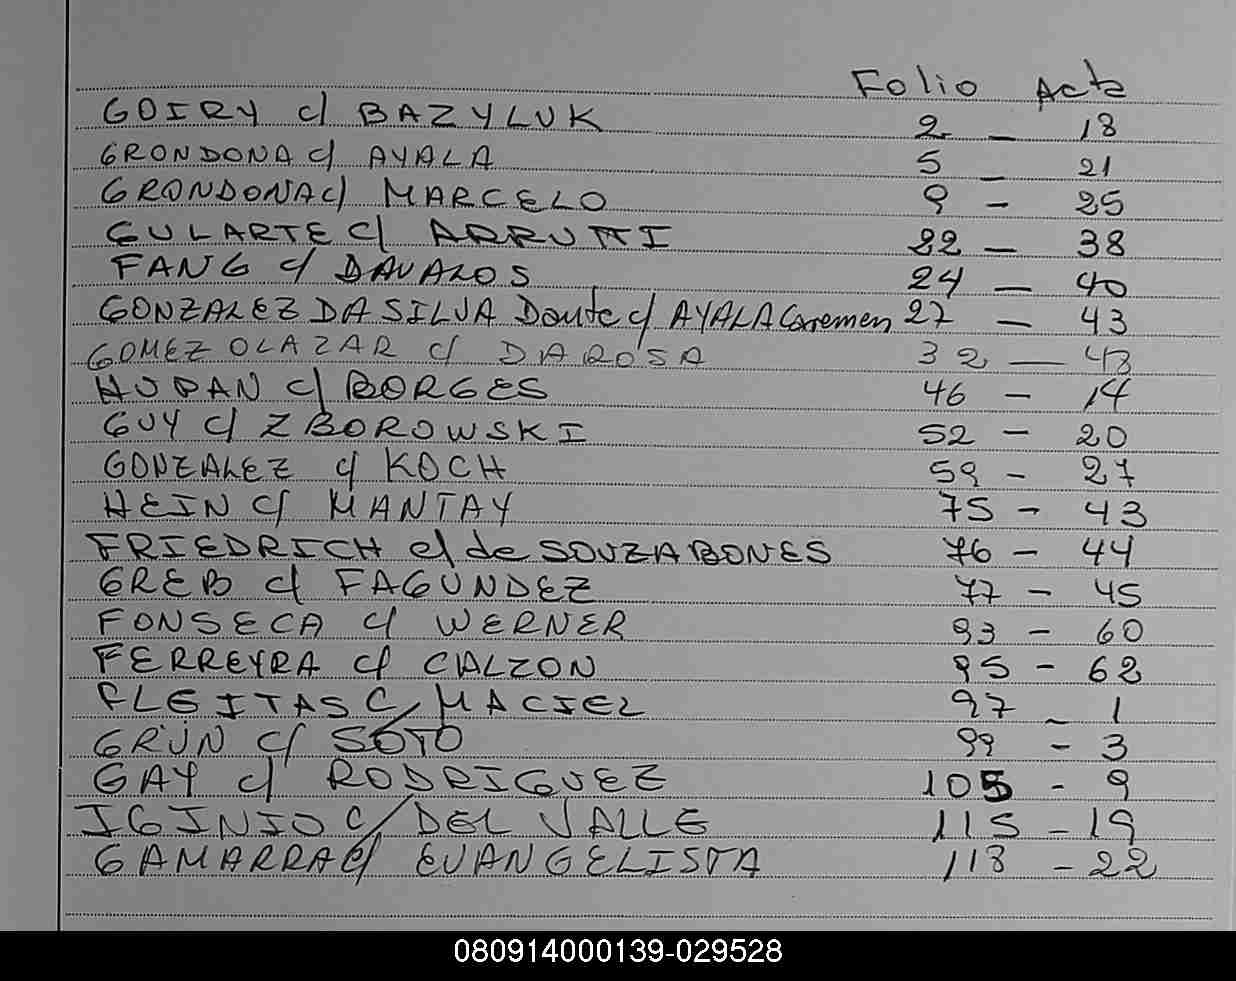 Folio Acta
GOIRY c/ BAZYLUK 2 - 18
GRONDONA c/ AYALA 5 - 21
GRONDONA c/ MARCELO 9 - 25
GULARTE c/ ARRUTTI 22 - 38
FANG c/ DAVALOS 24 - 40
GONZALEZ DA SILVA Dante c/ AYALA Caremen 27 - 43
GOMEZ OLAZAR c/ DAROSA 32 - 48
HUPAN c/ BORGES 46 - 14
GUY c/ ZBOROWSKI 52 - 20
GONZALEZ c/ KOCH 59 - 27
HEIN c/ MANTAY 75 - 43
FRIEDRICH c/ de SOUZA BONES 76 - 44
GREB c/ FAGUNDEZ 77 - 45
FONSECA c/ WERNER 93 - 60
FERREYRA c/ CALZON 95 - 62
FLEITAS C/ MACIEL 97 - 1
GRÜN c/ SOTO 99 - 3
GAY c/ RODRIGUEZ 105 - 9
IGINIO c/ DEL VALLE 115 - 19
GAMARRA c/ EVANGELISTA 118 - 22
080914000139-029528